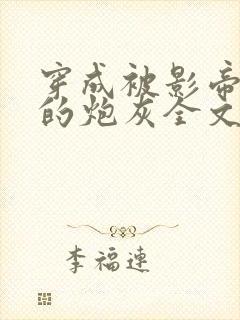 穿成被影帝
的炮灰全文
李福連